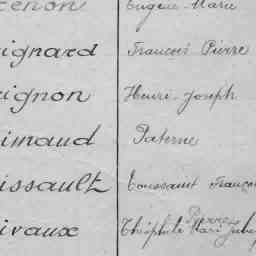 enon Eugène-Marie
ignard François Pierre
ignon Henri-Joseph
imaud Paterne
issault Toussaint Françoi
Pierre
ivaux Théophile Mari